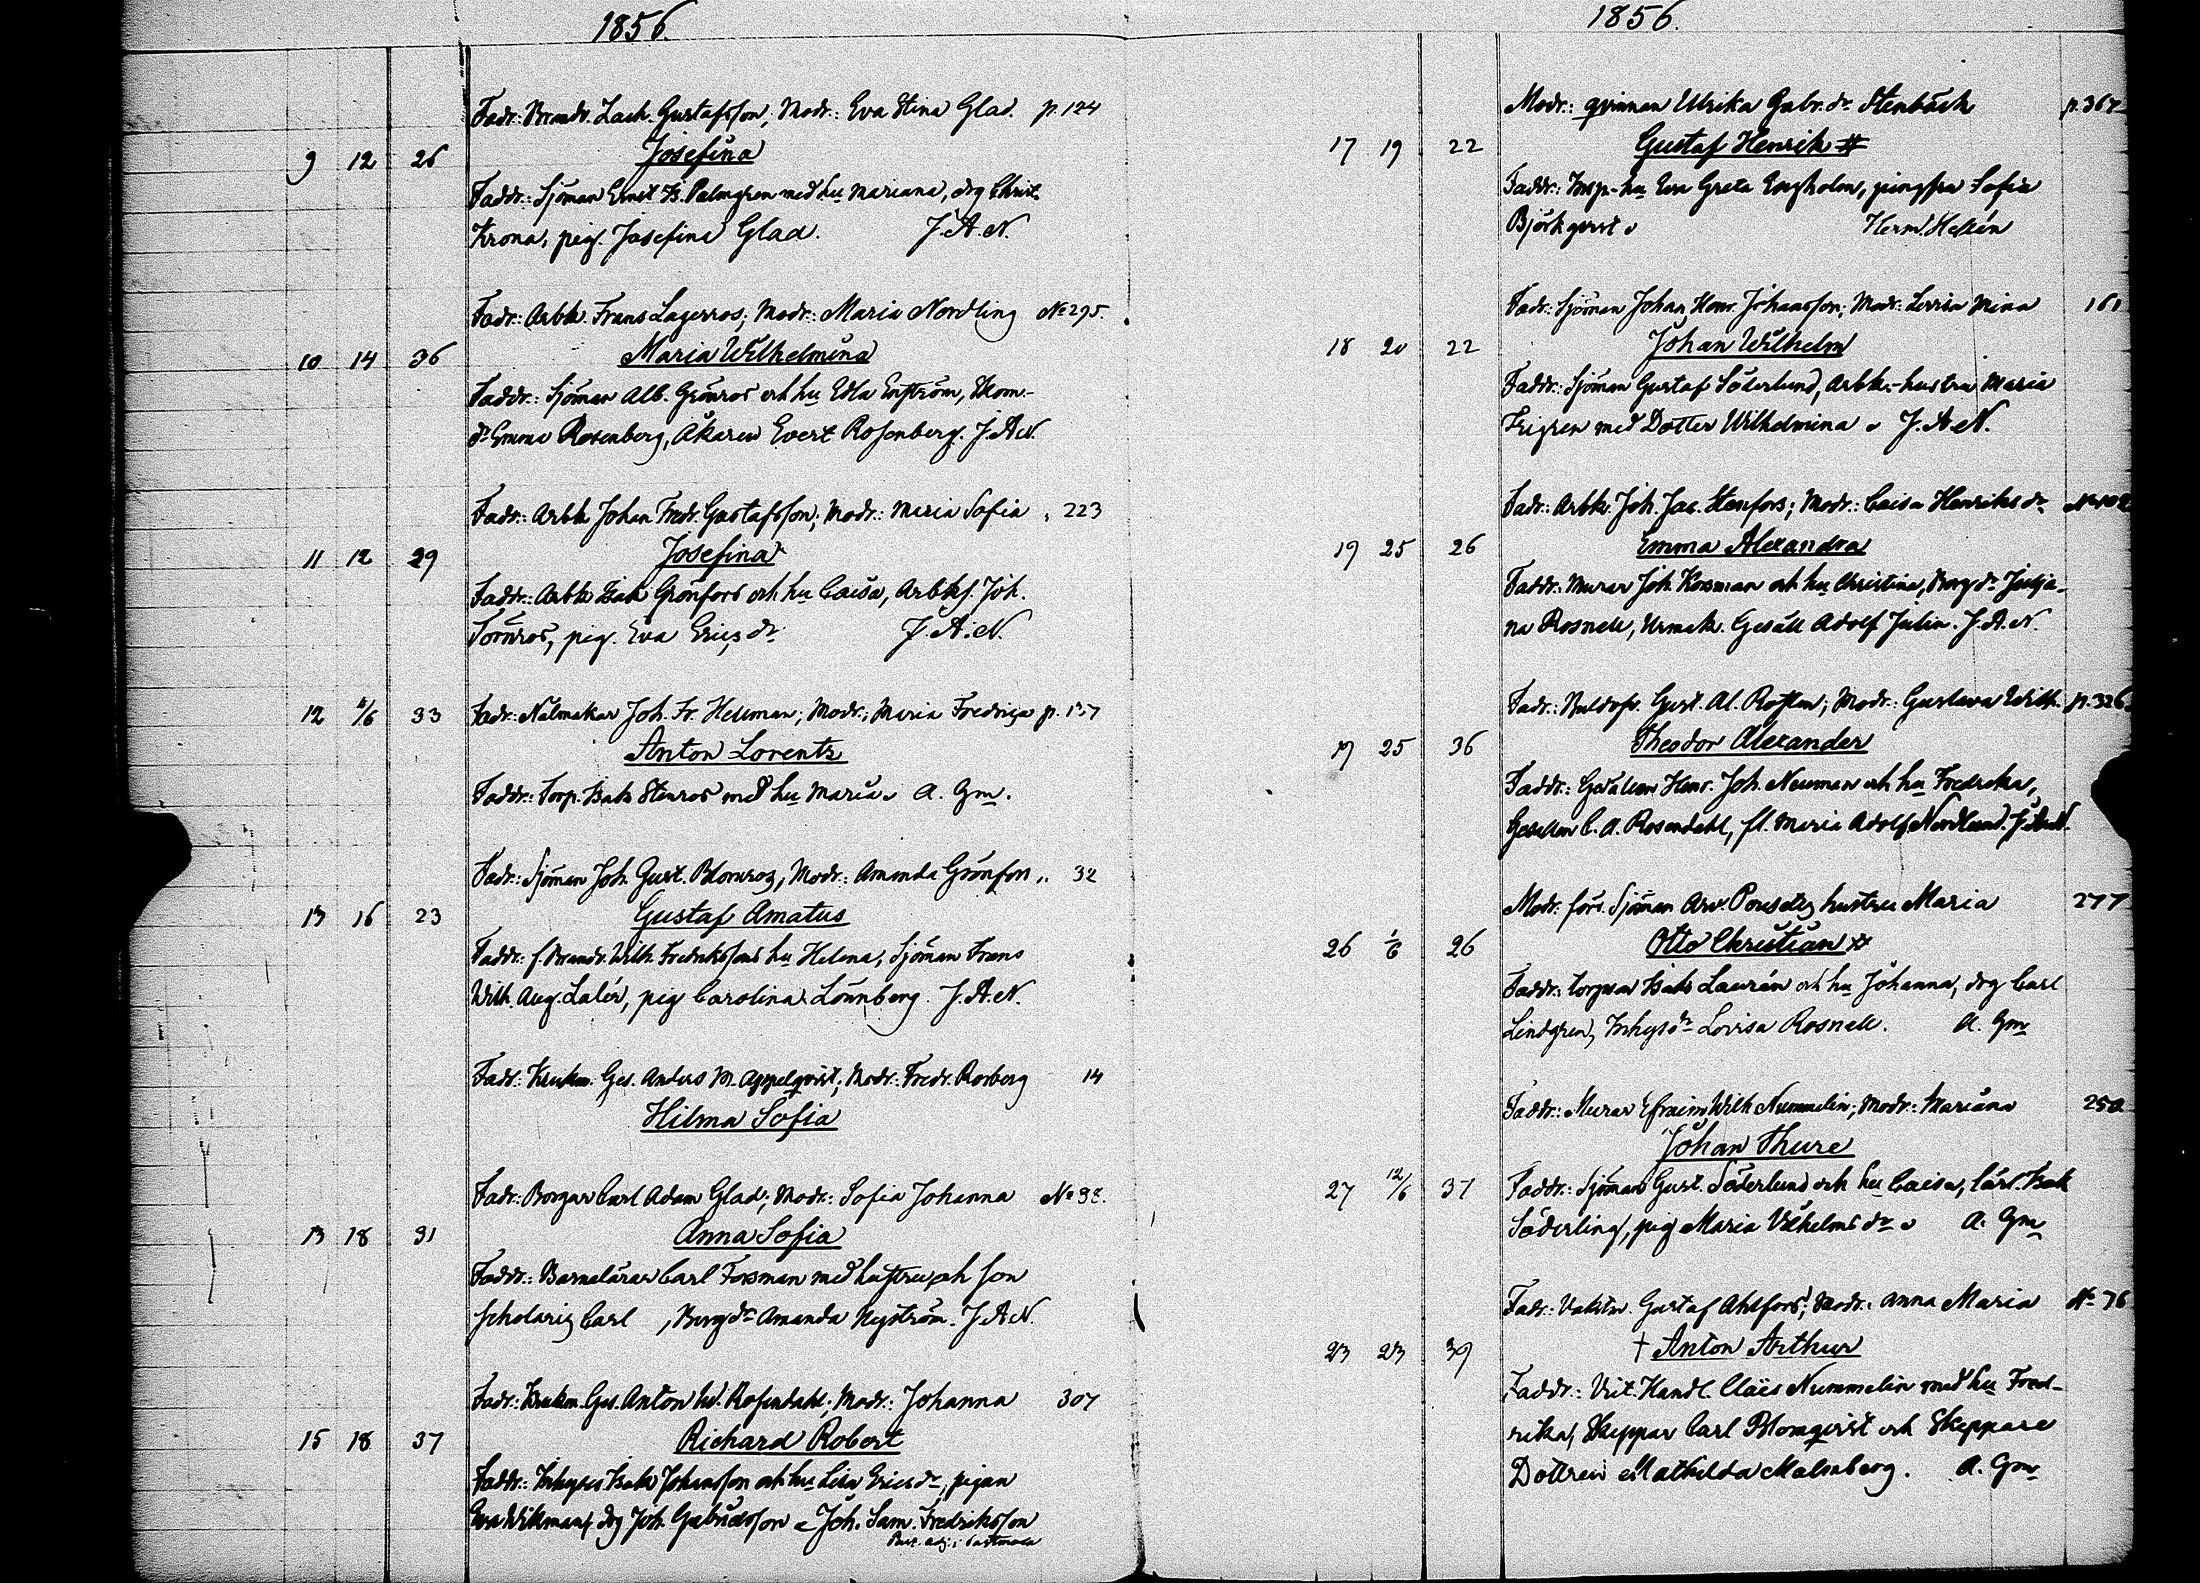 1856.
Fadr: Brandv. Zach. Gustafsson, Modr: Eva Stina Glad. p. 124
9 12 26 Josefina
Faddr: Sjöman Ernst Fr. Palmgren med hu Mariana, drg Christ.
Krona, pig. Josefina Glad. J. A. N.
Fadr: Arbk. Frans Lagerros; Modr: Maria Nordling No 295.
10 14 36 Maria Wilhelmina
Faddr: Sjöman Alb. Grönros och hu Edla Enström, Skom-
dr Emma Rosenberg, Åkaren Evert Rosenberg. J. A. N.
Fadr: Arbk Johan Fredr. Gustafsson; Modr: Maria Sofia " 223
11 12 29 Josefina
Faddr: Arbk Isak Grönfors och hu Caisa, Arbks. Joh.
Törnros, pig. Eva Ericsdr J. A. N.
12 4/6 33 Fadr: Nålmakar Joh. Fr. Hellman; Modr: Maria Fredrica p. 137
Anton Lorentz
Faddr: Torp. Isak Stenros med hu Maria. A. Gm.
Fadr: Sjöman Joh. Gust. Blomros; Modr: Amanda Grönfors ". 32
13 16 23 Gustaf Amatus
Faddr: f. Brandv. Wilh. Fredrikssons hu Helena, Sjöman Frans
Wilh. Aug. Lalér, pig Carolina Lönnberg. J. A. N.
Fadr: Krukm. Ges. Anders M. Appelqvist; Modr: Fredr. Rosberg 14
Hilma Sofia
Fadr: Borgar Carl Adam Glad; Modr: Sofia Johanna No 98.
13 18 31 Anna Sofia
Faddr: Barnalärar Carl Forsman med hustru och son
scholaris Carl, Borgdr Amanda Nyström. J. A. N.
Fadr: Krukm. Ges. Anton W. Rosendahl; Modr: Johanna 307
15 18 37 Richard Robert
Faddr: Inhyses Isak Johansson och hu Lisa Ericsdr, pigan
Eva Wikman, drg Joh. Gabrielsson. Joh. Sam. Fredriksson
Past. adj. i Sastmola
1856.
Modr: qvinnan Ulrika Gabr. dr Stenbäck p. 367
17 19 22 Gustaf Henrik #
Faddr: Insp-hu Eva Greta Engholm, jungfru Sofia
Björkqvist. Herm. Hellén
Fadr: Sjöman Johan Henr. Johansson; Modr: Lovisa Mina 161
18 20 22 Johan Wilhelm
Faddr: Sjöman Gustaf Söderlund, Arbk.-hustru Maria
Frigren med Dotter Wilhelmina. J. A. N.
Fadr: Arbk. Joh. Jac. Stenfors; Modr: Caisa Henriksdr No 102
19 25 26 Emma Alexandra
Faddr: Murar Joh. Kosman och hu Christina, Borgdr Julja-
na Rosnell, Urmak. Gesäll Adolf Julin. J. A. N.
Fadr: Guldsfr. Gust. Al. Rostén; Modr: Gustava Wilh. p. 326
19 25 36 Theodor Alexander
Faddr: Gesällen Henr. Joh. Neuman och hu Fredrika,
Gesällen C. A. Rosendahl, fl. Maria Adolf. Nordlund. J. A. N.
Modr: förs. Sjöman Arv. Pousetts hustru Maria 277
26 1/6 26 Otto Christian
Faddr: torpar Isak Laurén och hu Johanna, drg Carl
Lindgren, Inhysdr Lovisa Rosnell. A. Gm
Faddr: Murar Efraim Wilh Nummelin; Modr: Mariana 250
Johan Thure
27 12/6 37 Faddr: Sjöman Gust. Söderlund och hu Caisa, lärl. Isak
Söderling, pig Maria Vilhelmsdr. A. Gm
Fadr: Vaktm. Gustaf Ahlfors; Modr: Anna Maria No 76
23 23 39 † Anton Arthur
Faddr: Vict. Handl. Claës Nummelin med hu Fred-
rika, Skeppar Carl Blomqvist och Skeppare
Dottren Mathilda Malmberg. A. Gm